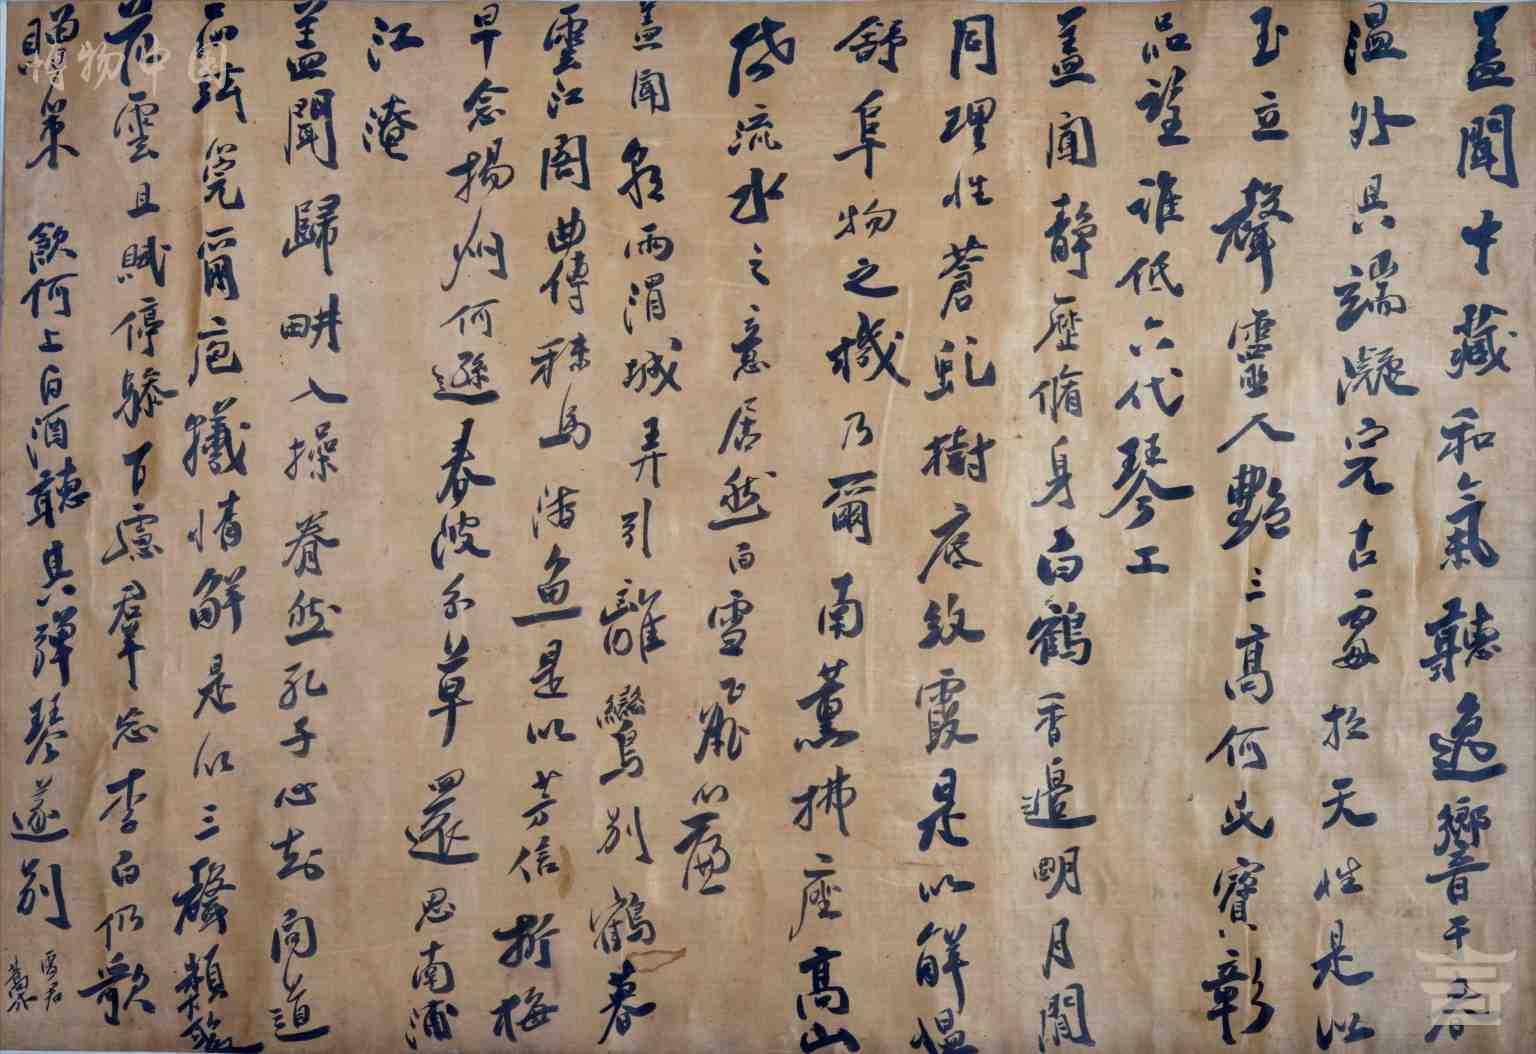 蓋聞中藏和氣聽逸響音于春
溫外具端凝完古
於天性是以
玉立聲靈人艷三高何此寶彰
品望誰低六代琴工
蓋聞靜歷脩身白鶴香邊明月閒
同理性蒼虬樹底紋霞是以解慍
舒阜物之機乃爾南薰拂座高山
流水之意居然白雪
蓋聞
雨渭城弄引離鸞別鶴暮
雲江閣曲傳秣馬
魚是以芳信折梅
早念揚州何遜春波
草還思南浦
江淹
蓋聞歸畊入操眷然孔子心
向道
爾庖犧情
是以三聲類
雲且賦停驂百慮羣忘李白仍歌
策
飲何上白酒聽其彈琴遂別
博物中国